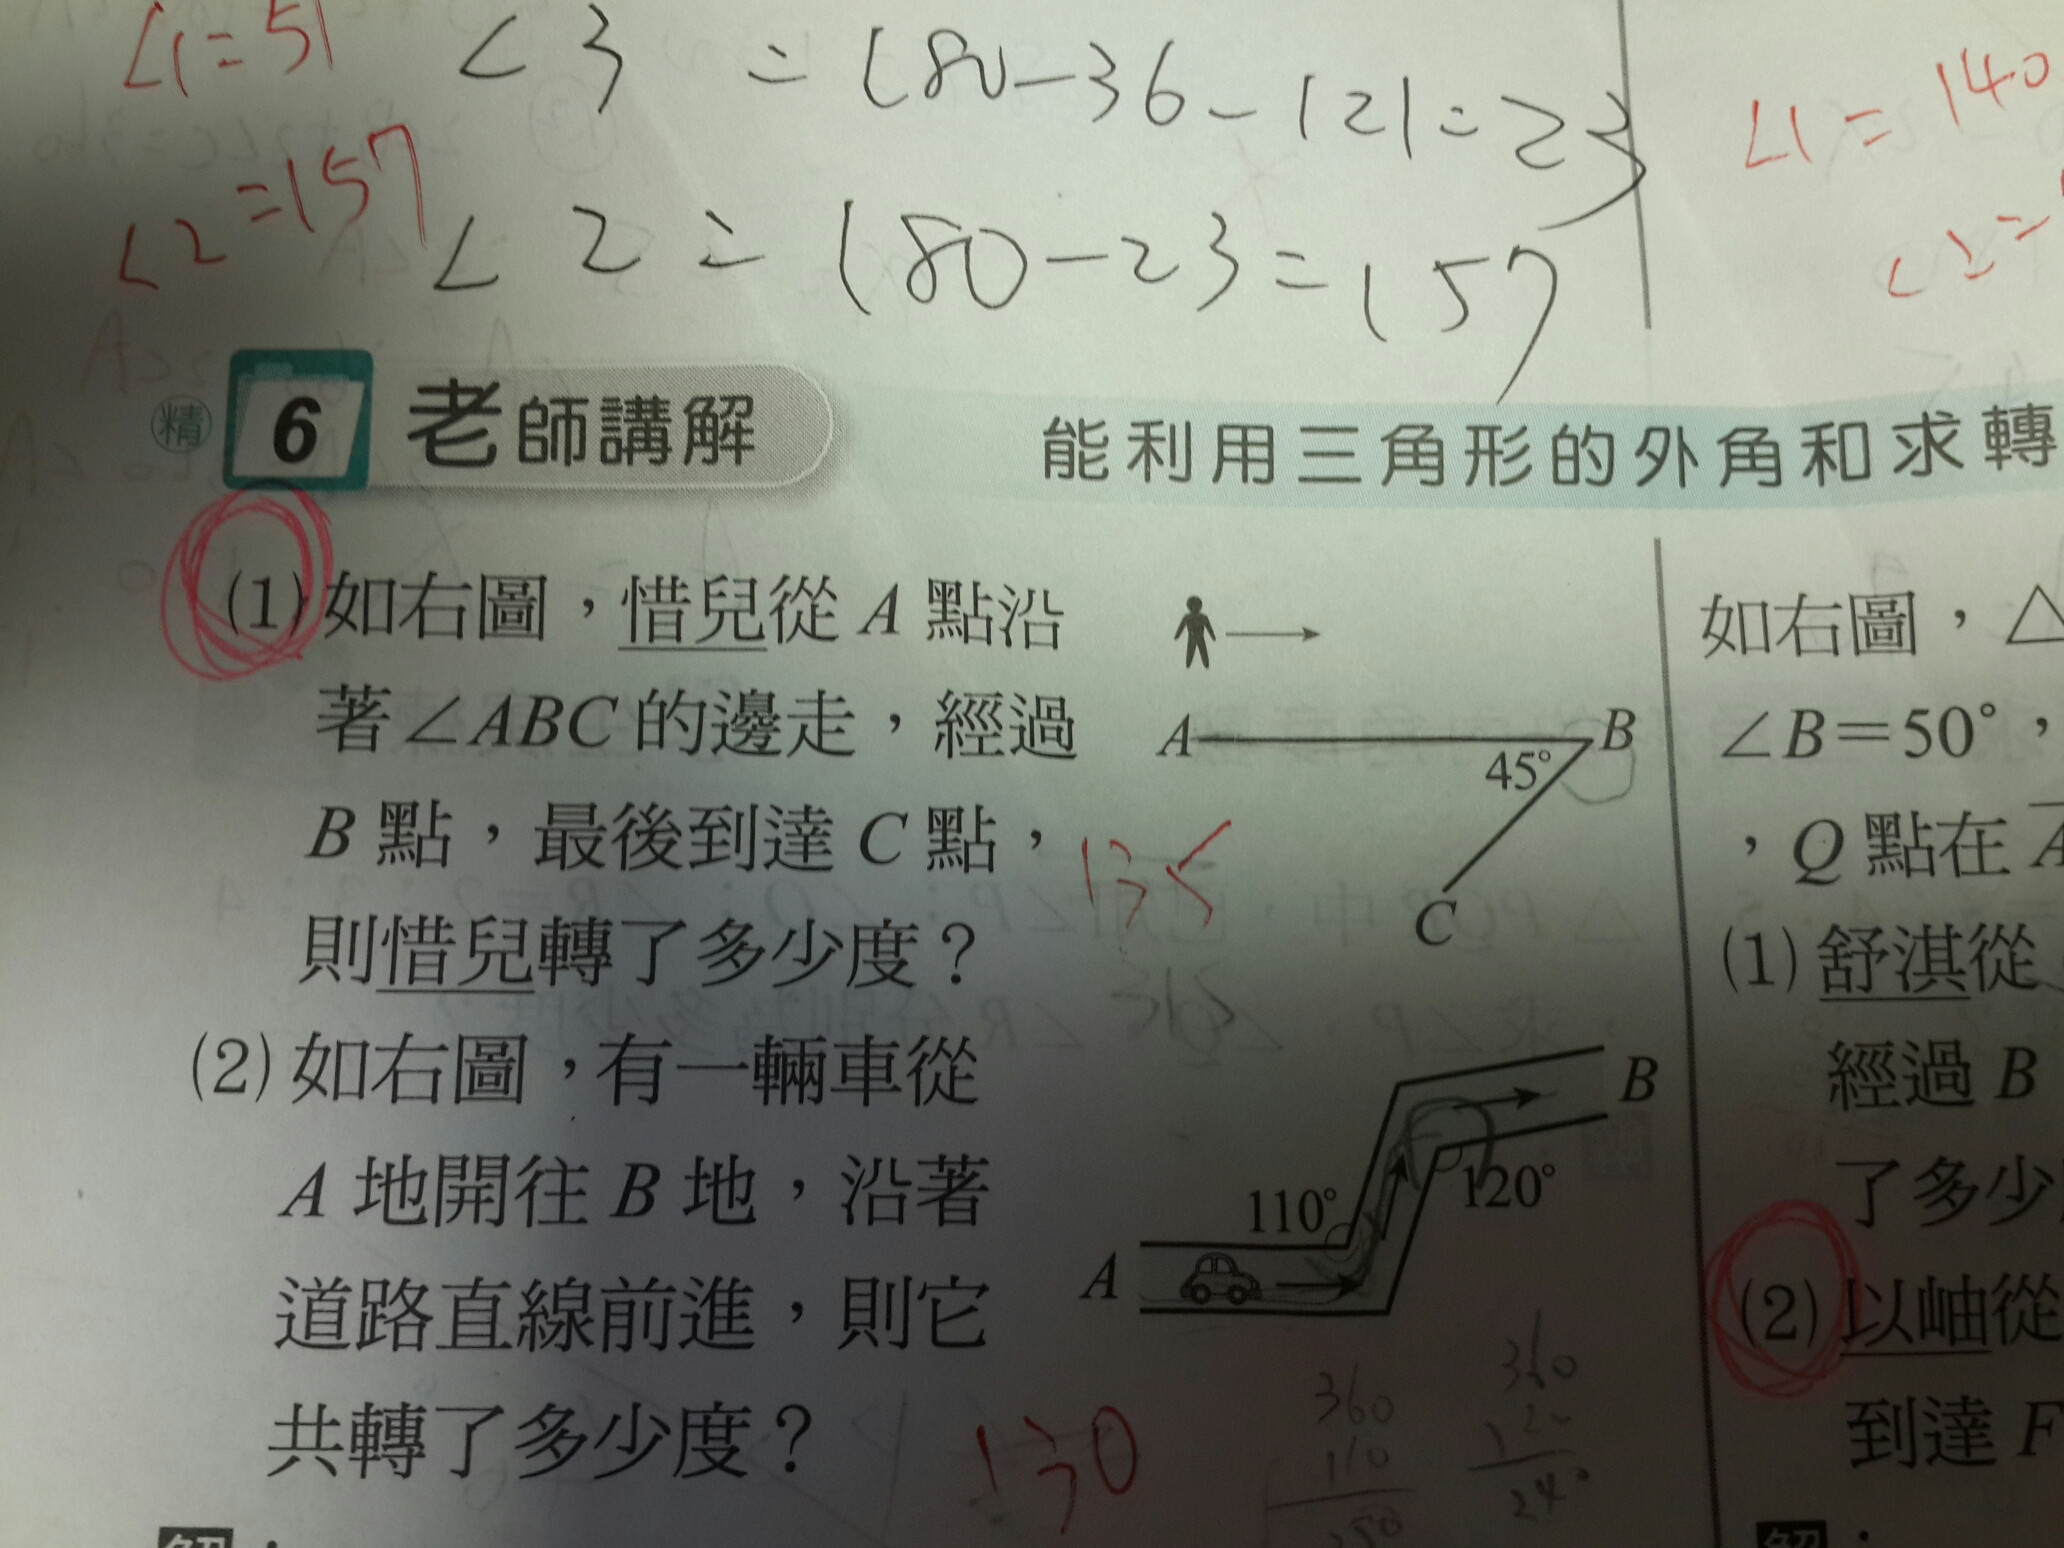 ∠1=51
∠3 = 180-36-121=23
∠1=140
∠2=157
∠2=180-23=157
∠2=
精 6 老師講解
能利用三角形的外角和求轉
(1)如右圖,惜兒從A點沿
著∠ABC的邊走,經過
B點,最後到達C點,
則惜兒轉了多少度?
A
B
45°
C
135
(2)如右圖,有一輛車從
A地開往B地,沿著
道路直線前進,則它
共轉了多少度?
B
120°
110°
A
130
360
110
250
360
120
240
解:
如右圖,△
∠B=50°,
,Q點在A
(1)舒淇從
經過B
了多少
(2)以岫從
到達F
解: